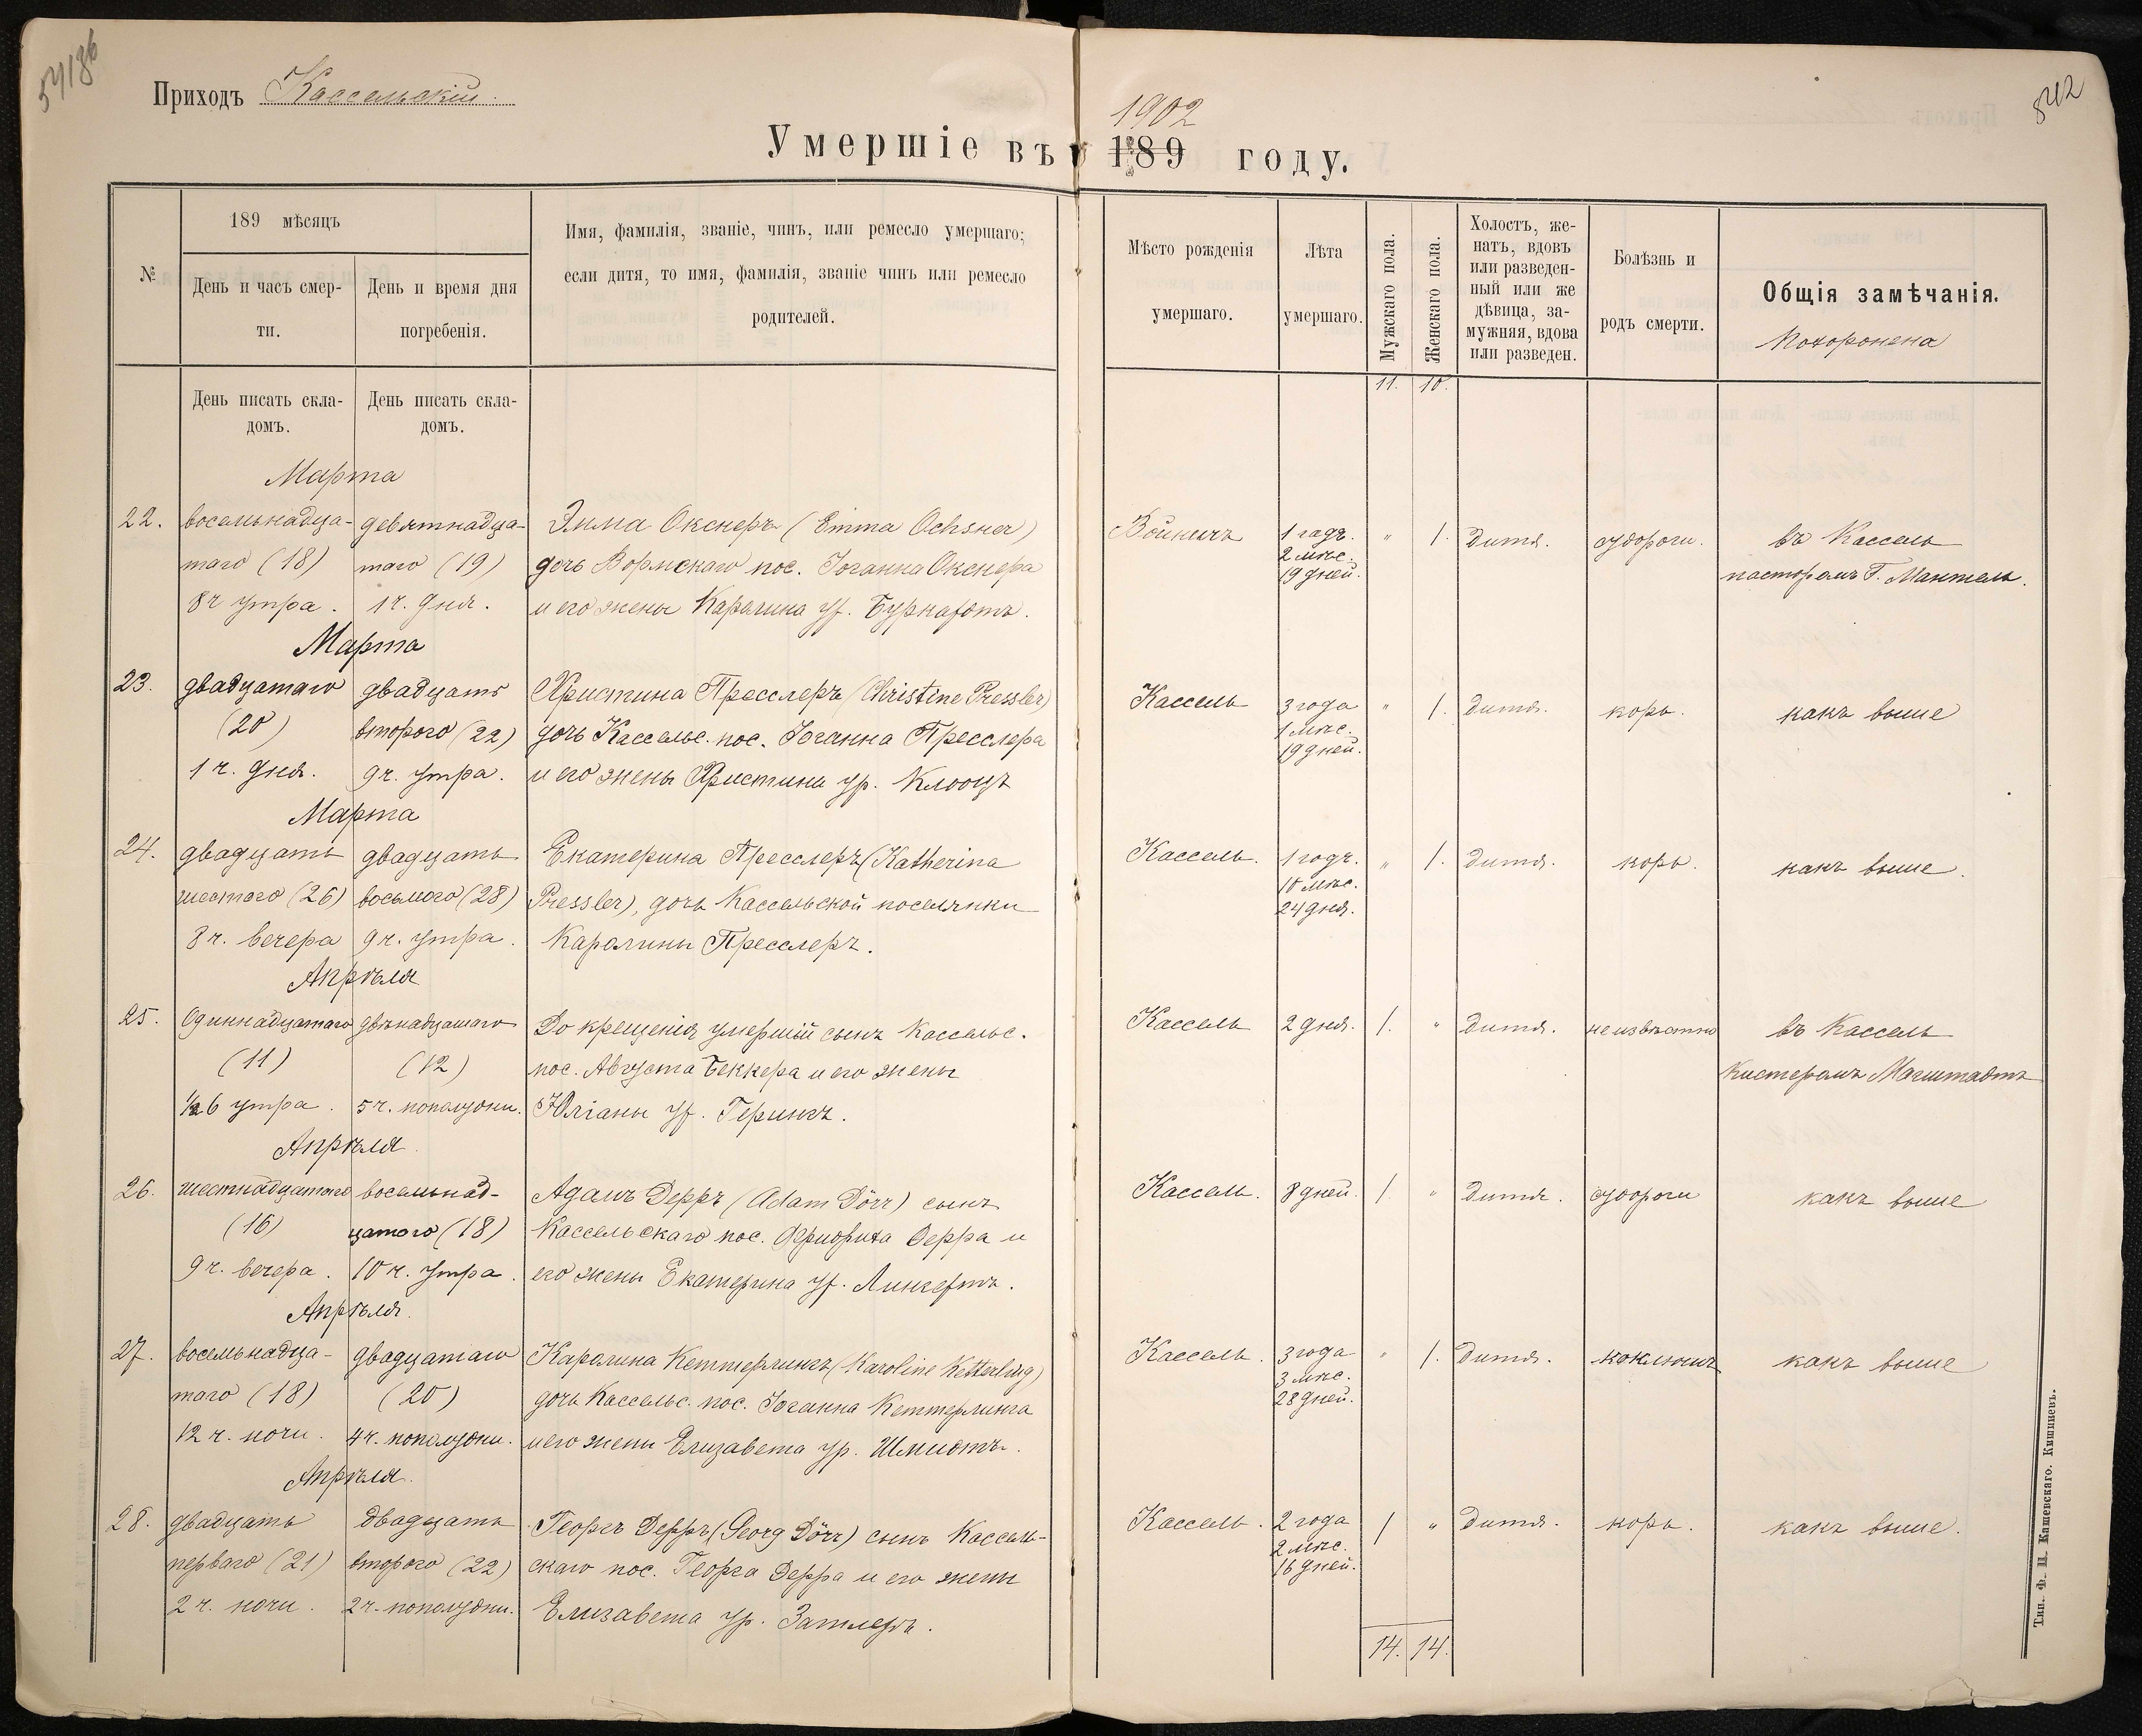 54186
Приходъ Кассельскій.
842
1902
Умершіе въ 189 году.
№
189 мѣсяцъ
День и часъ смер-
ти.
День и время дня
погребенія.
Имя, фамилія, званіе, чинъ, или ремесло умершаго;
если дитя, то имя, фамилія, званіе чинъ или ремесло
родителей.
Мѣсто рожденія
умершаго.
Лѣта
умершаго.
Мужскаго пола.
Женскаго пола.
Холостъ, же-
натъ, вдовъ
или разведен-
ный или же
дѣвица, за-
мужняя, вдова
или разведен.
Болѣзнь и
родъ смерти.
Общія замѣчанія.
Похоронена
День писать скла-
домъ.
День писать скла-
домъ.
11. 10.
Марта
22. восемьнадца- девятнадца- Эмма Окснеръ (Emma Ochsner) Войничъ 1 годъ. " 1. дитя. судороги. въ Кассель
таго (18) таго (19) дочь Вормскаго пос. Іоганна Окснера 2 мѣс. пасторомъ Г. Мантель.
19 дней.
8 ч утра. 1 ч. дня. и его жены Каролина ур. Бурнафтъ.
Марта
23. двадцатаго двадцать Христина Пресслеръ (Christine Pressler) Кассель 3 года " 1. дитя. корь. какъ выше
(20) второго (22) дочь Кассельс. пос. Іоганна Пресслера 1 мѣс.
19 дней.
1 ч. дня. 9 ч. утра. и его жены Христины ур. Клооцъ
Марта
24. двадцать двадцать Екатерина Пресслеръ (Katherina Кассель. 1 годъ. " 1. дитя. корь. какъ выше.
шестаго (26) восьмого (28) Pressler), дочь Кассельской поселянки 10 мѣс.
24 дня.
8 ч. вечера 9 ч. утра. Каролины Пресслеръ.
Апрѣля
25. Одиннадцатаго двѣнадцатаго До крещенія умершій сынъ Кассельс. Кассель 2 дня. 1. " дитя. неизвѣстно въ Кассель
(11) (12) пос. Августа Беккера и его жены Кистеромъ Магштадтъ
1/2 6 утра. 5 ч. пополудни. Юліаны ур. Герингъ.
Апрѣля.
26. шестнадцатаго восемьнад- Адамъ Дерръ (Adam Dörr) сынъ Кассель. 8 дней. 1. " дитя. судороги какъ выше
(16) цатого (18) Кассельскаго пос. Фридриха Дерра и
9 ч. вечера. 10 ч. утра. его жены Екатерина ур. Лингертъ.
Апрѣля.
27. восемьнадца- двадцатаго Каролина Кеттерлингъ (Karoline Ketterling) Кассель. 3 года " 1. дитя. коклюшъ какъ выше
таго (18) (20) дочь Кассельс. пос. Іоганна Кеттерлинга 3 мѣс.
28 дней.
12 ч. ночи. 4 ч. пополудни. и его жены Елизавета ур. Шмидтъ.
Апрѣля.
28. двадцать двадцать Георгъ Дерръ (Georg Dörr) сынъ Кассель- Кассель. 2 года 1 " дитя. корь. какъ выше.
перваго (21) второго (22) скаго пос. Георга Дерра и его жены 2 мѣс.
16 дней.
2 ч. ночи. 2 ч. пополудни. Елизавета ур. Затлеръ.
14. 14.
Тип. Ф. П. Кашевскаго. Кишиневъ.